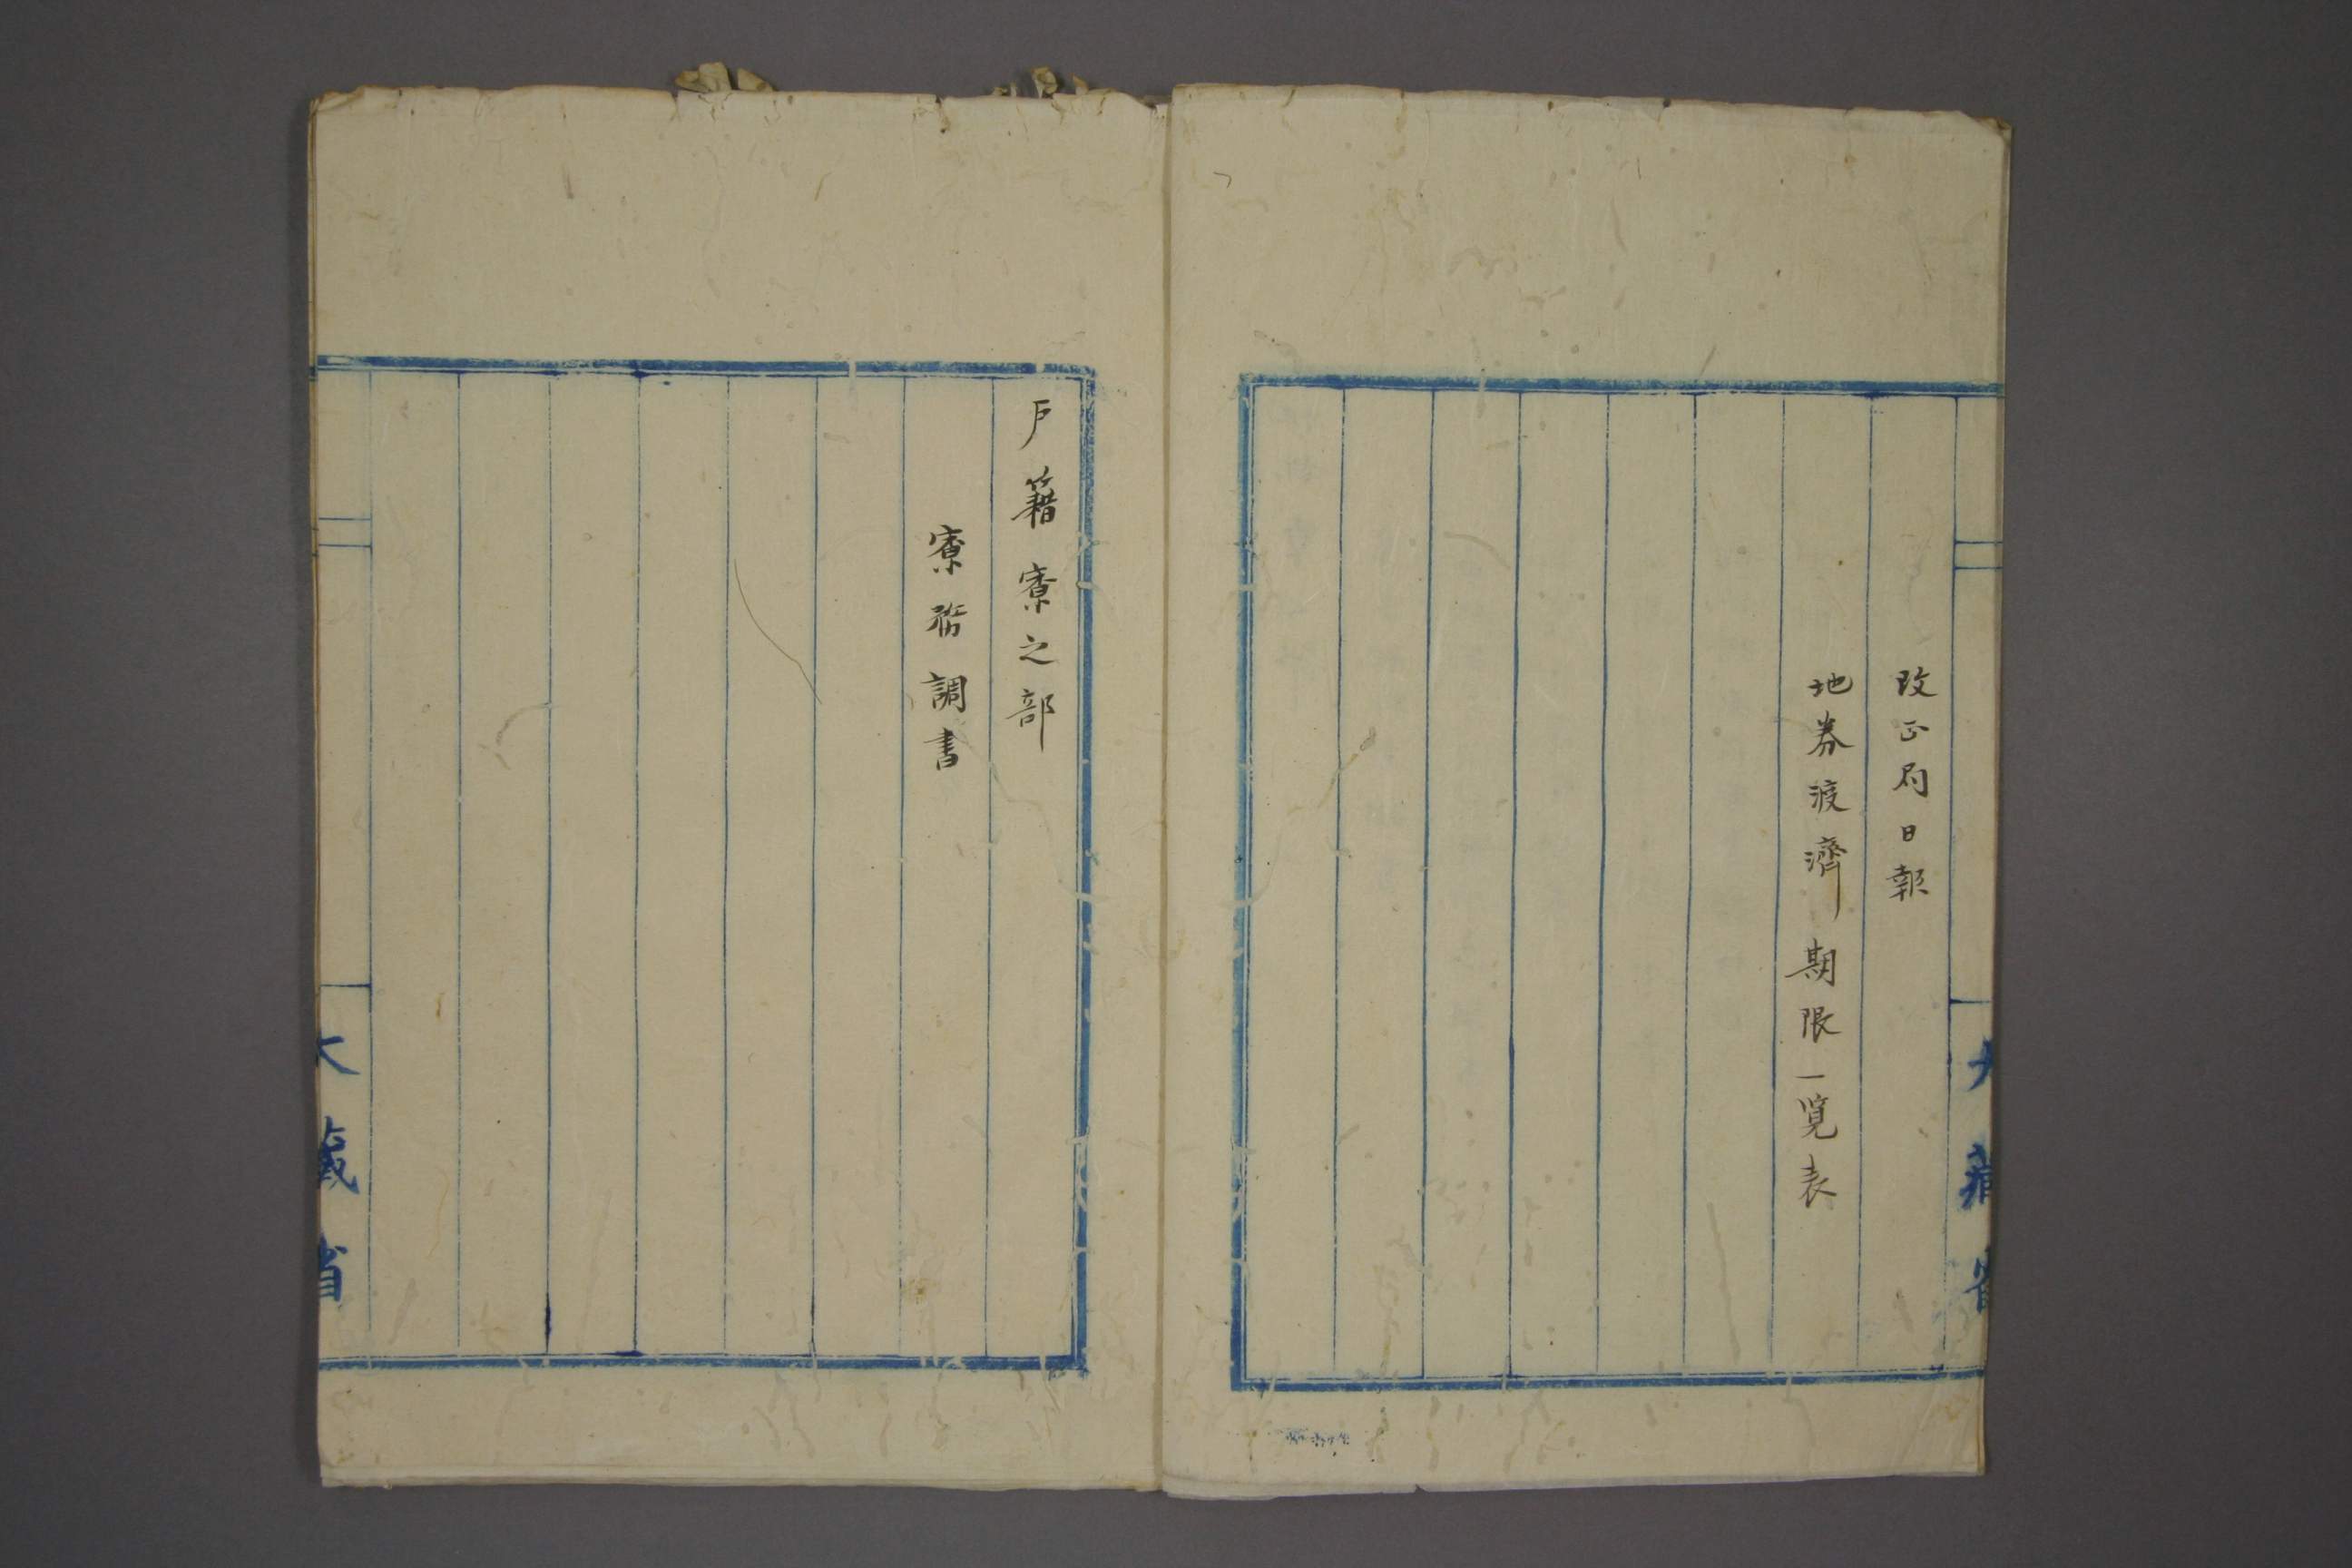 改正局日報
地券渡濟期限一覧表
大藏省
戸籍寮之部
寮務調書
大藏省